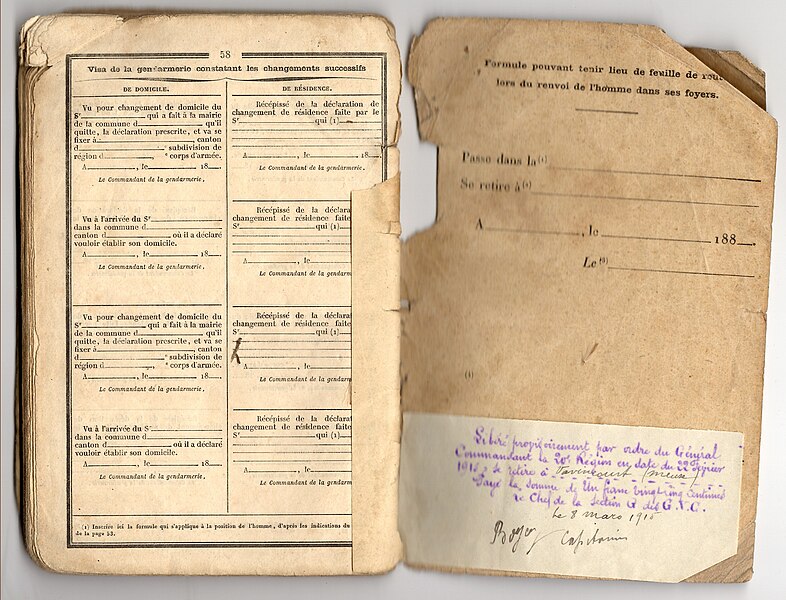 58
Visa de la gendarmerie constatant les changements successifs
DE DOMICILE.
Vu pour changement de domicile du
Sr qui a fait à la mairie
de la commune d qu'il
quitte, la déclaration prescrite, et va se
fixer à canton
d e subdivision de
région d e corps d'armée.
A , le 18 .
Le Commandant de la gendarmerie,
Vu à l'arrivée du Sr
dans la commune d
canton d où il a déclaré
vouloir établir son domicile.
A , le 18 .
Le Commandant de la gendarmerie,
Vu pour changement de domicile du
Sr qui a fait à la mairie
de la commune d qu'il
quitte, la déclaration prescrite, et va se
fixer à canton
d e subdivision de
région d e corps d'armée.
A , le 18 .
Le Commandant de la gendarmerie,
Vu à l'arrivée du Sr
dans la commune d
canton d où il a déclaré
vouloir établir son domicile.
A , le 18 .
Le Commandant de la gendarmerie,
DE RÉSIDENCE.
Récépissé de la déclaration de
changement de résidence faite par le
Sr qui (1)
A , le 18 .
Le Commandant de la gendarmerie,
Récépissé de la déclara
changement de résidence faite
Sr qui (1)
A , le
Le Commandant de la gendarm
Récépissé de la déclara
changement de résidence faite
Sr qui (1)
A , le
Le Commandant de la gendarm
Récépissé de la déclara
changement de résidence faite
Sr qui (1)
A , le
Le Commandant de la gendarm
(1) Inscrire ici la formule qui s'applique à la position de l'homme, d'après les indications du
de la page 53.
Formule pouvant tenir lieu de feuille de rou
lors du renvoi de l'homme dans ses foyers.
Passe dans la (1)
Se retire à (2)
A , le 188
Le (3)
(1)
Libéré provisoirement par ordre du Général
Commandant la 20e Région en date du 22 février
1915, se retire à Vavincourt (Meuse)
Payé la somme de Un franc vingt cinq centimes
Le Chef de la Section G des G.V.C.
Le 8 mars 1915
Boyer Capitaine